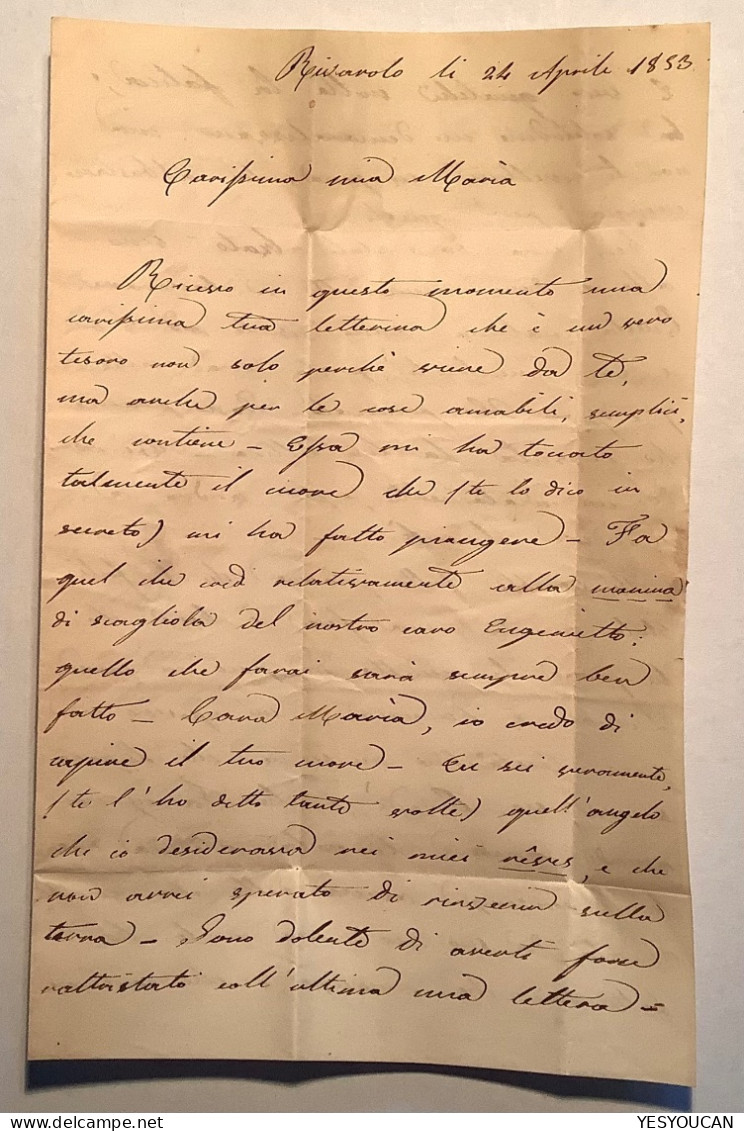 Rivarolo li 24 Aprile 1853
Carissima mia Maria
Ricevo in questo momento una
carissima tua letterina che è un vero
tesoro non solo perchè viene da te,
ma anche per le cose amabili, semplici,
che contiene – Essa mi ha toccato
talmente il cuore che (te lo dico in
secreto) mi ha fatto piangere – Fa
quel che credi relativamente alla manina
di scagliola del nostro caro Eugenietto:
quello che farai sarà sempre ben
fatto – Cara Maria, io credo di
capire il tuo cuore – Tu sei veramente,
(te l'ho detto tante volte) quell'angelo
che io desiderava nei miei rêves, e che
non avrei sperato di rinvenir sulla
terra – Sono dolente di averti forse
rattristato coll'ultima mia lettera –
YESYOUCAN